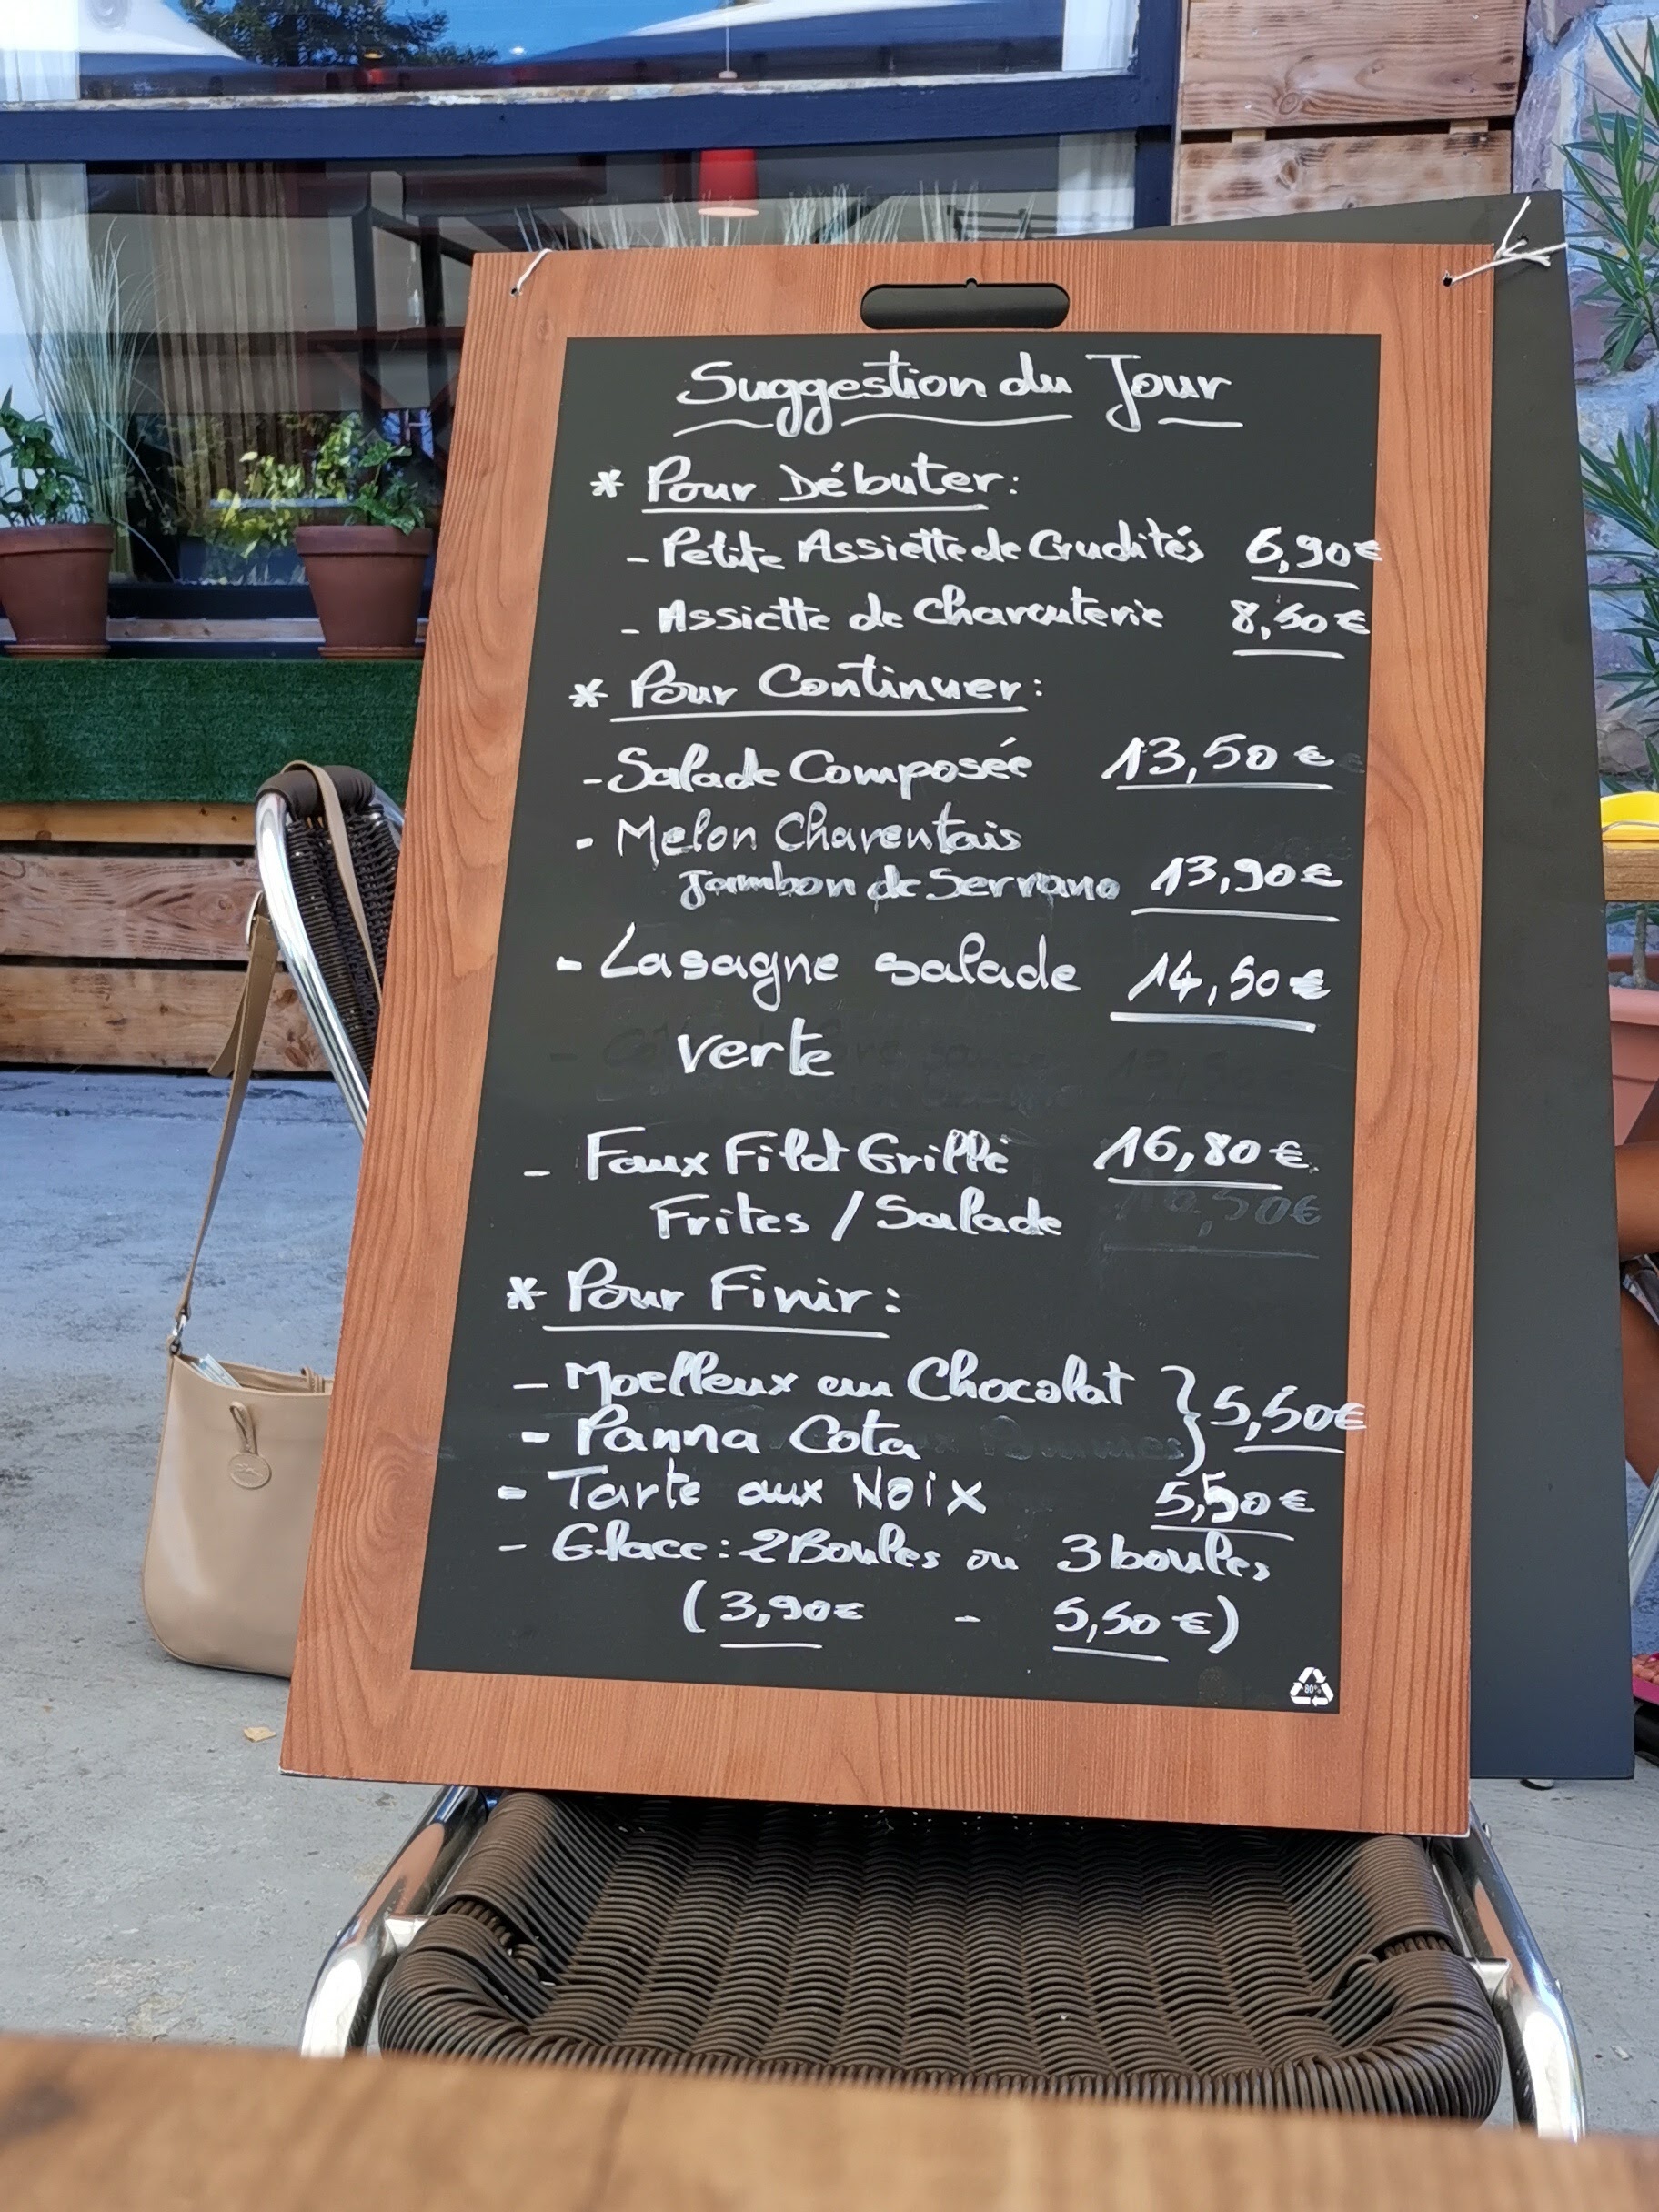 Suggestion du Jour
* Pour Débuter:
- Petite Assiette de Crudités 6,90€
- Assiette de Charcuterie 8,50€
* Pour Continuer:
- Salade Composée 13,50€
- Melon Charentais
Jambon de Serrano 13,90€
- Lasagne salade 14,50€
verte
- Faux Filet Grillé 16,80€
16,50€
Frites / Salade
* Pour Finir:
- Moelleux au Chocolat } 5,50€
- Panna Cota
- Tarte aux Noix 5,50€
- Glace: 2 Boules ou 3 boules
(3,90€ - 5,50€)
80%